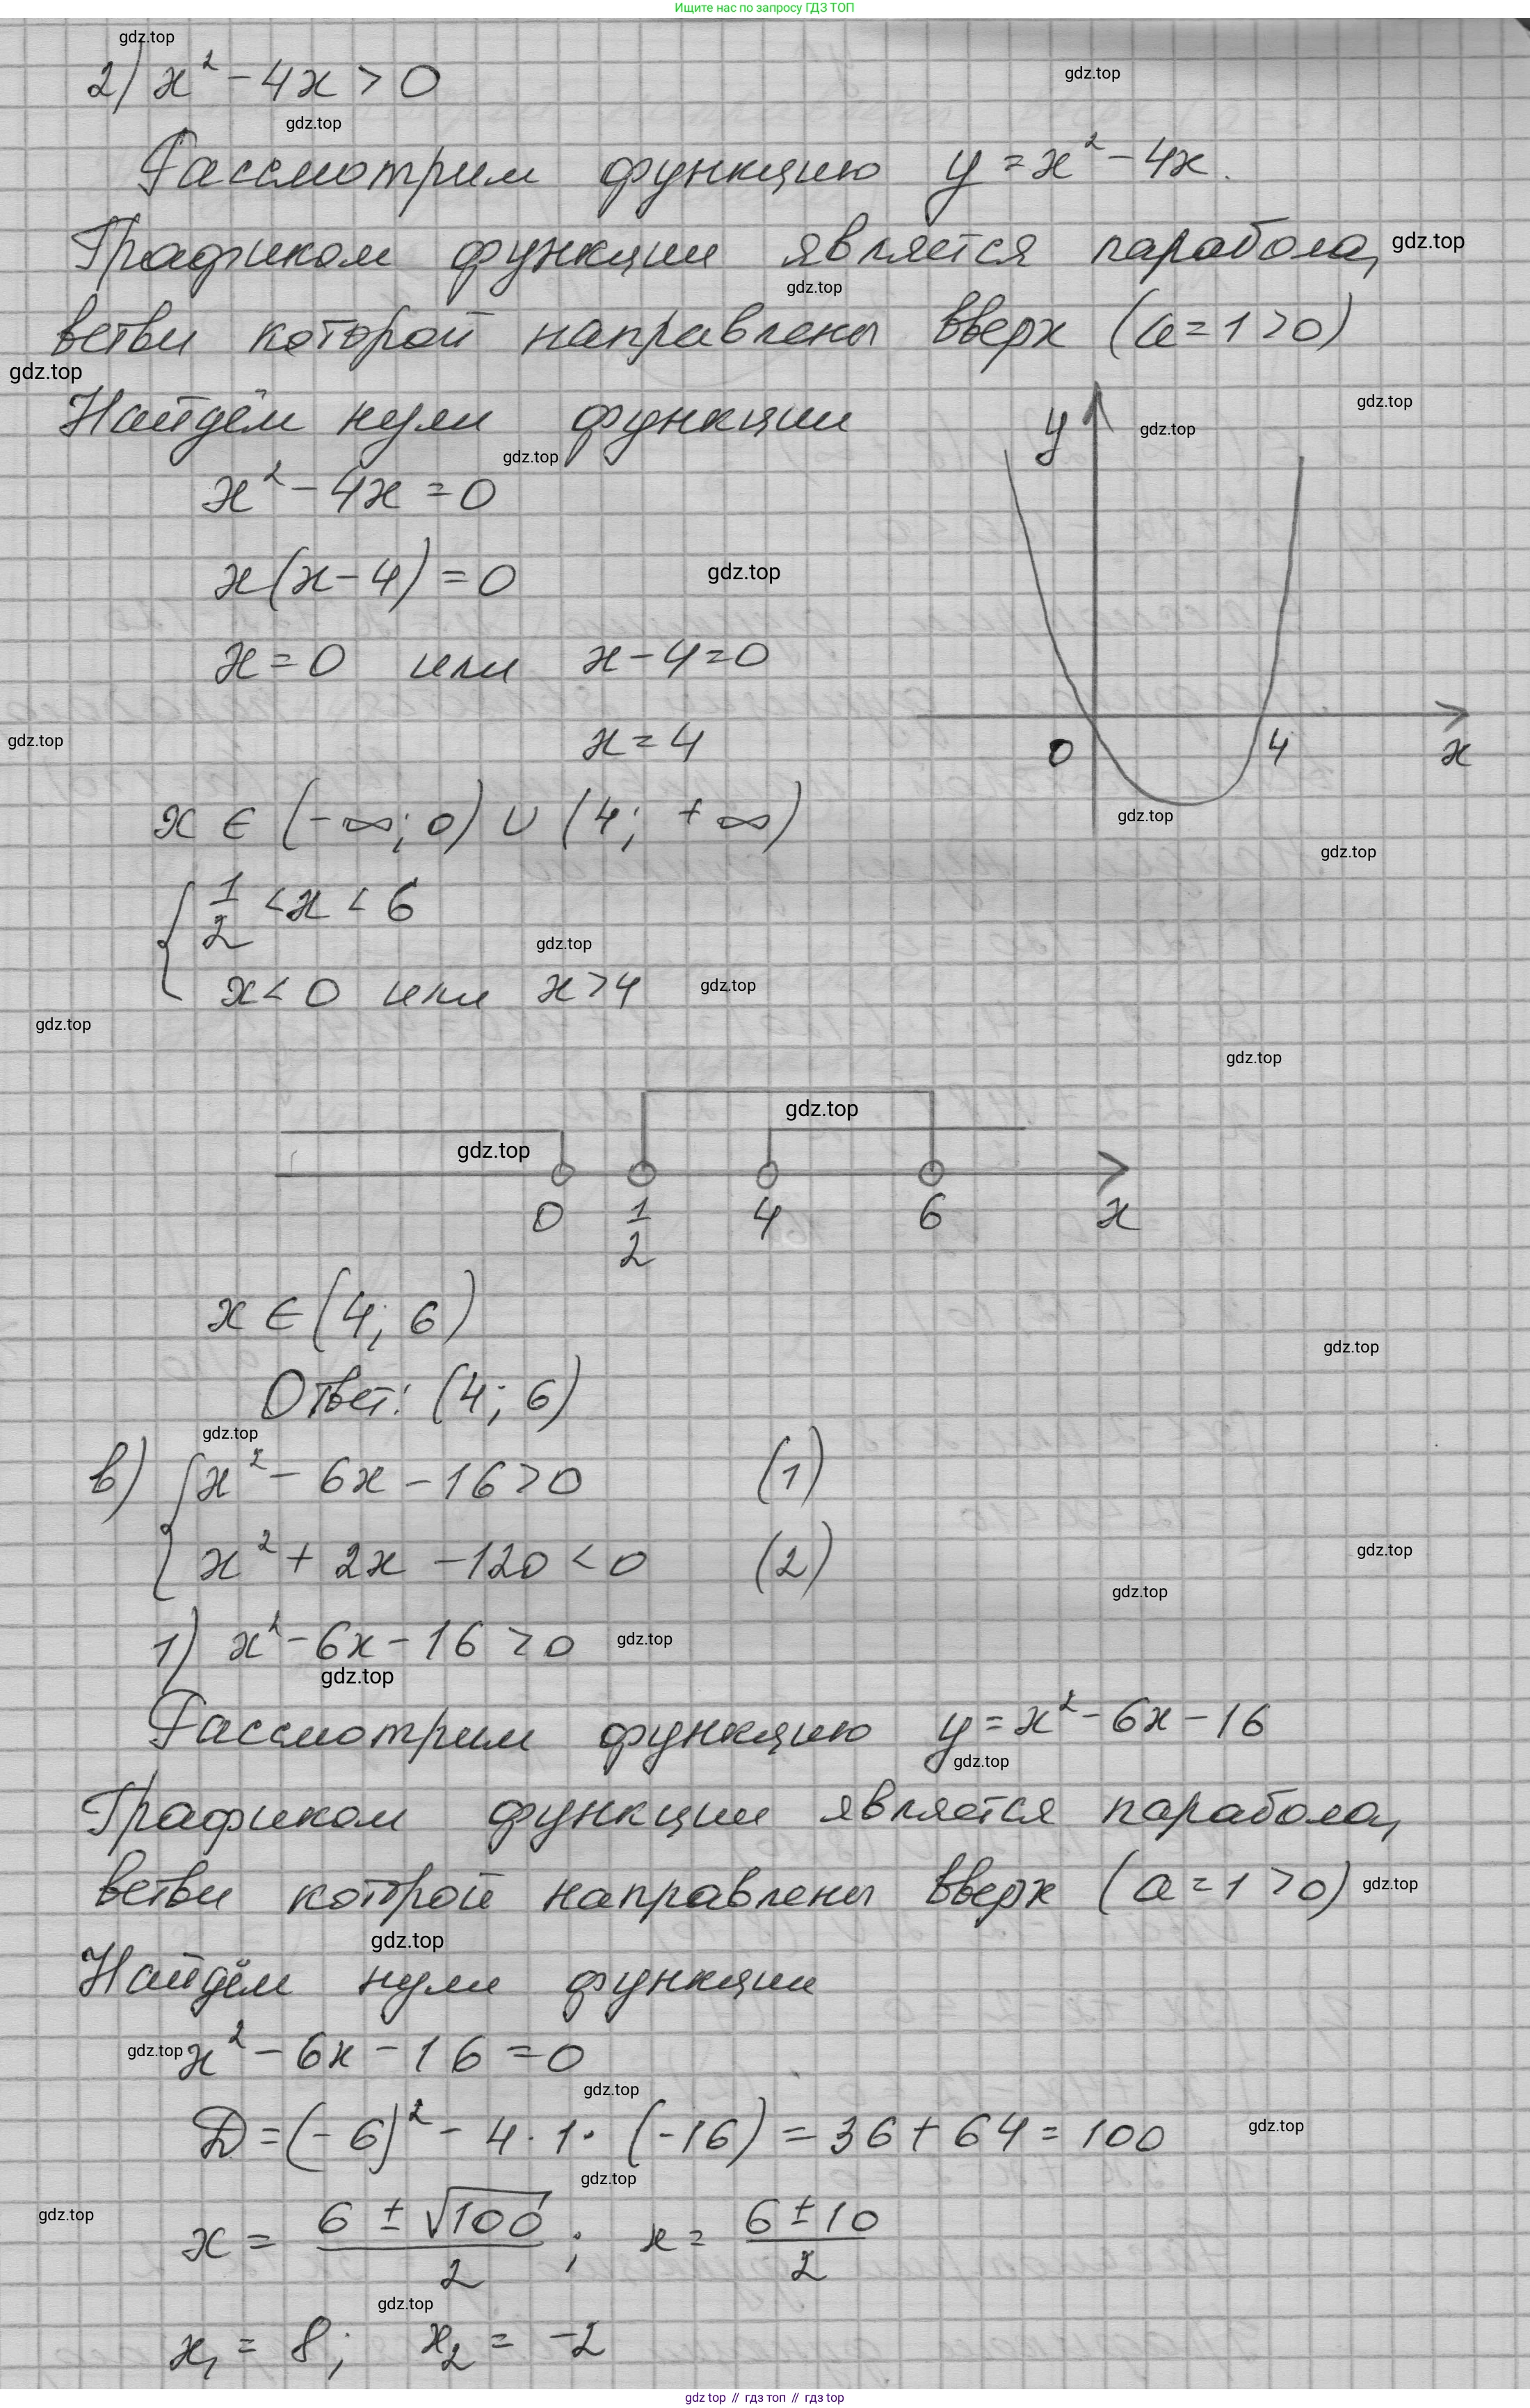 Ищите нас по запросу ГДЗ ТОП
gdz.top
2) x² - 4x > 0
gdz.top
gdz.top
Рассмотрим функцию y = x² - 4x.
Графиком функции является парабола, gdz.top
gdz.top
ветви которой направлены вверх (a = 1 > 0)
gdz.top
Найдём нули функции
gdz.top
y gdz.top
gdz.top
x² - 4x = 0
x(x - 4) = 0
gdz.top
x = 0 или x - 4 = 0
gdz.top
x = 4
0 4 x
gdz.top
x ∈ (-∞; 0) ∪ (4; +∞)
gdz.top
{ 1/2 < x < 6
gdz.top
x < 0 или x > 4
gdz.top
gdz.top
gdz.top
gdz.top
gdz.top
0 1/2 4 6 x
x ∈ (4; 6)
gdz.top
Ответ: (4; 6)
gdz.top
в) { x² - 6x - 16 > 0 (1)
x² + 2x - 120 < 0 (2)
gdz.top
gdz.top
1) x² - 6x - 16 > 0 gdz.top
gdz.top
Рассмотрим функцию y = x² - 6x - 16
gdz.top
Графиком функции является парабола,
ветви которой направлены вверх (a = 1 > 0) gdz.top
gdz.top
Найдём нули функции
gdz.top x² - 6x - 16 = 0
gdz.top
D = (-6)² - 4 · 1 · (-16) = 36 + 64 = 100
gdz.top
gdz.top
gdz.top
x = (6 ± √100)/2 ; x = (6 ± 10)/2
gdz.top
x₁ = 8; x₂ = -2
gdz top // гдз топ // гдз top